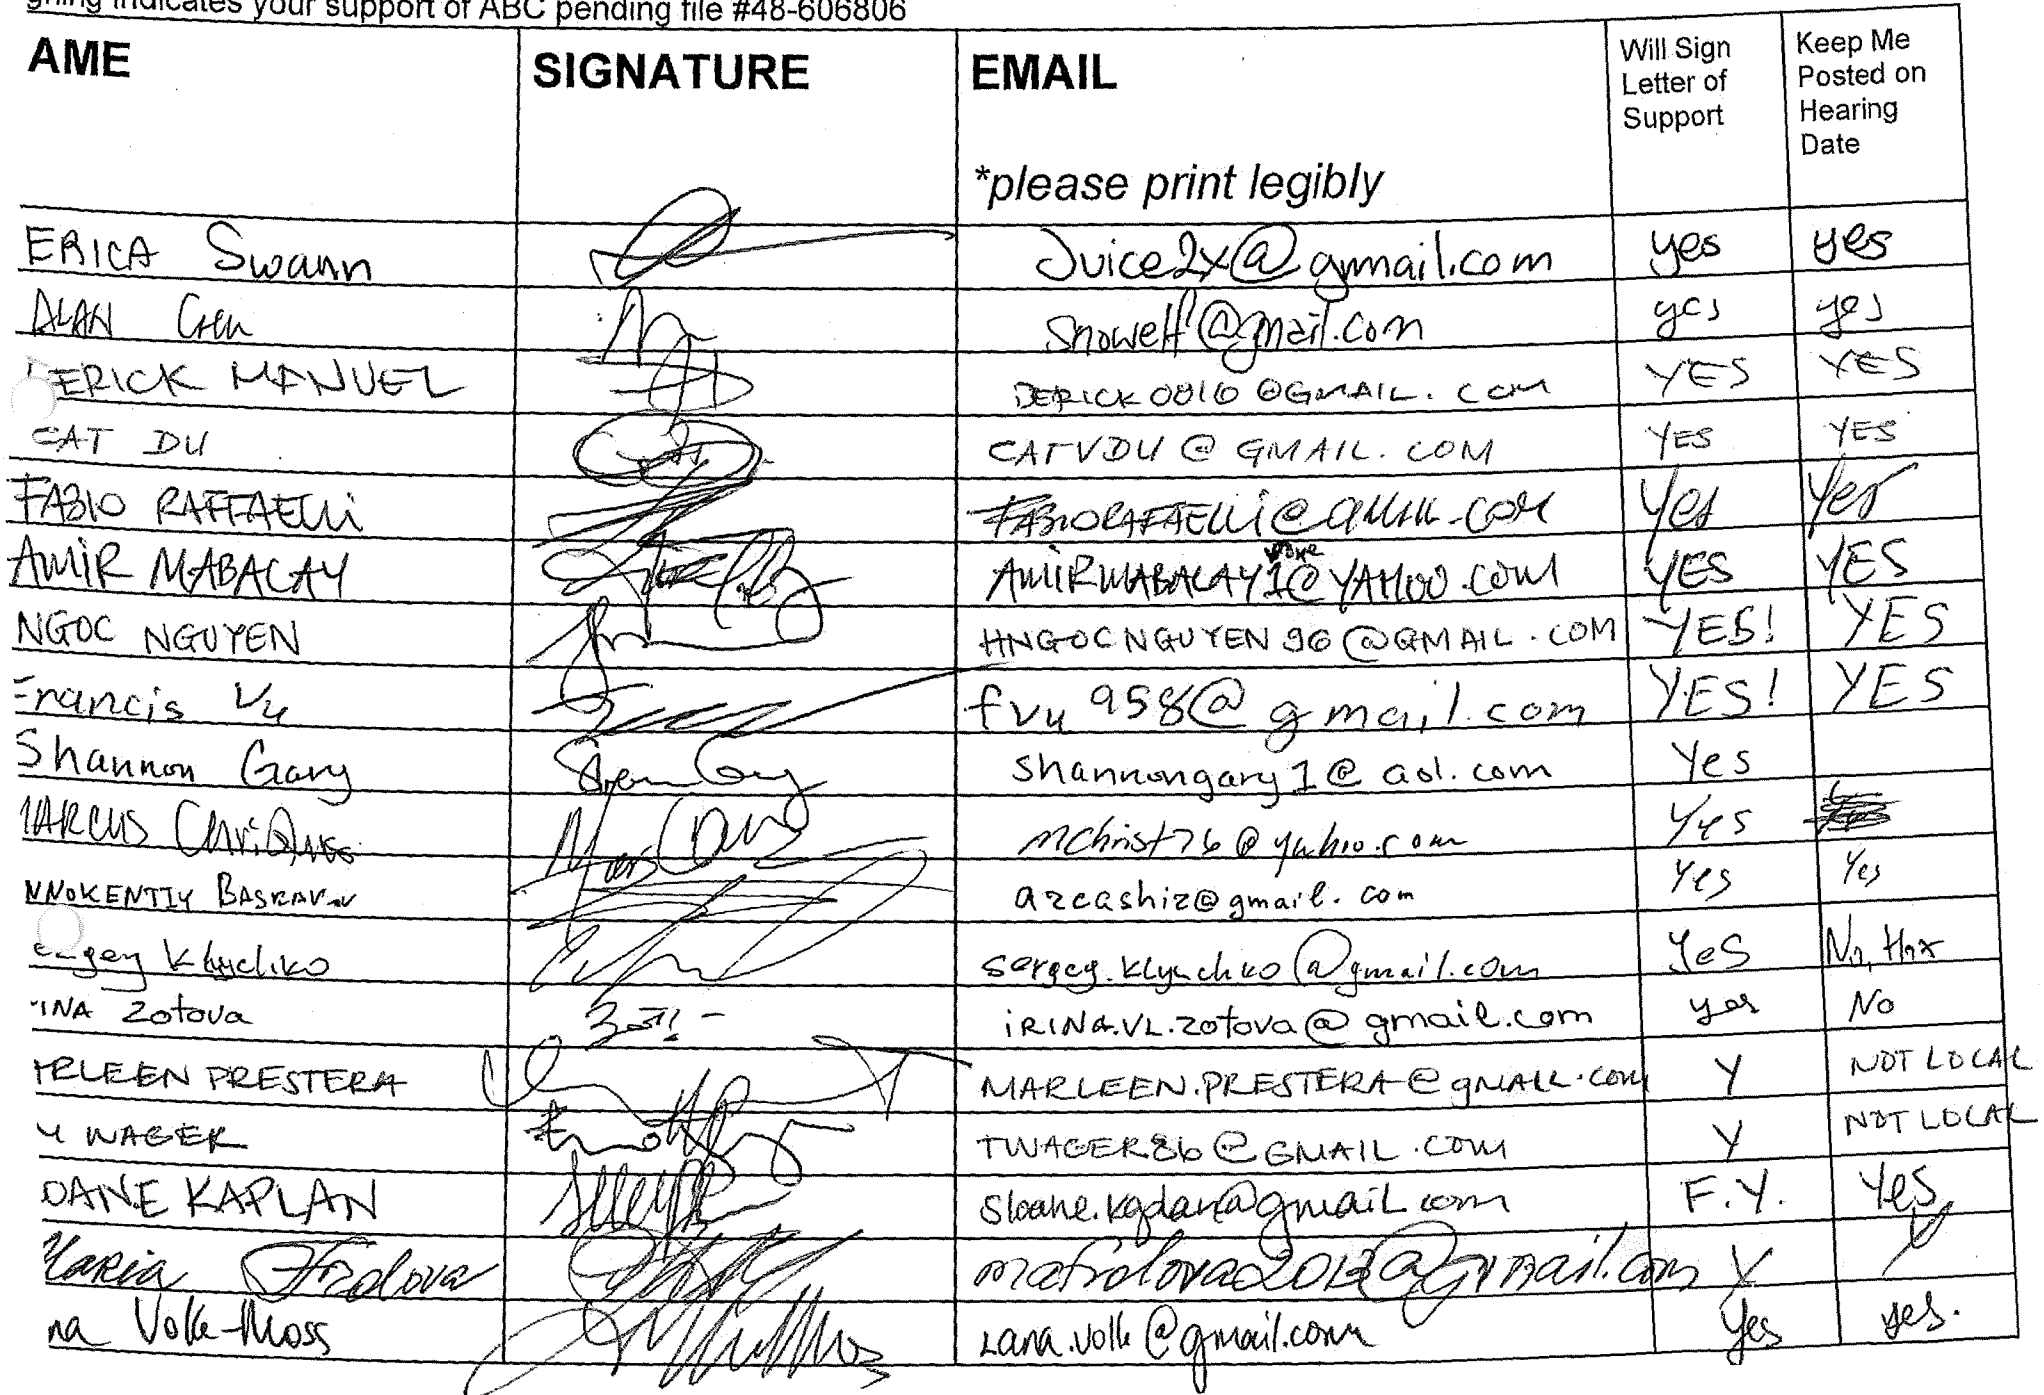 gning indicates your support of ABC pending file #48-606806
AME SIGNATURE EMAIL *please print legibly Will Sign Letter of Support Keep Me Posted on Hearing Date
ERICA Swann Juice2x@gmail.com yes yes
ALAN yes yes
ERICK MANUEL DERICK0816@GMAIL.COM YES YES
CAT DU CATVDU@GMAIL.COM YES YES
FABIO RAFFAELLI FABIORAFAELLI@GMAIL.COM Yes Yes
AMIR MABALAY AMIRMABALAY1@YAHOO.COM YES YES
NGOC NGUYEN HNGOCNGUYEN96@GMAIL.COM YES! YES
Francis Vu fvu958@gmail.com YES! YES
Shannon Gary shannongary1@aol.com Yes
MARCUS mchrist76@yahoo.com Yes
NNOKENTIY azcashiz@gmail.com Yes Yes
Klychko sergey.klychko@gmail.com Yes No, thx
INA Zotova iRINA.VL.zotova@gmail.com yes No
RLEEN PRESTERA MARLEEN.PRESTERA@gMAIL.com Y NOT LOCAL
Y WAGER TWAGER86@GMAIL.COM Y NOT LOCAL
OANE KAPLAN sloane.kaplan@gmail.com F.Y. Yes
Maria Frolova mafrolova2012@gmail.com Y Y
na Volk-Moss Lana.volk@gmail.com Yes yes.